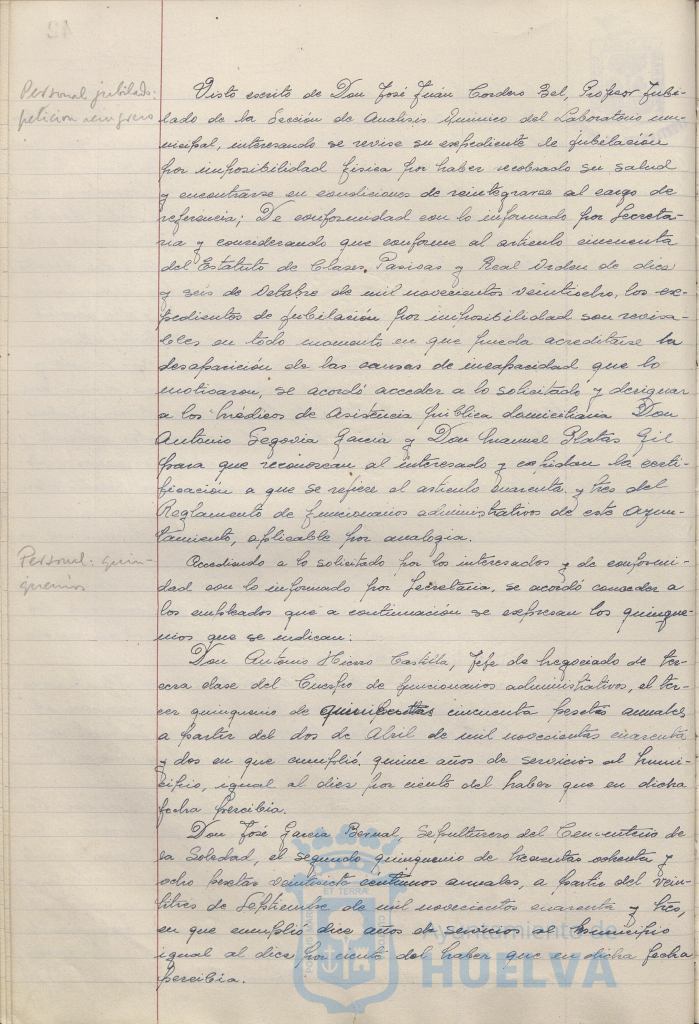 Personal jubilado:
peticion reingreso
Visto escrito de Don José Juán Cordero Bel, Profesor Jubi-
lado de la Sección de Analisis Químico del Laboratorio mu-
nicipal, interesando se revise su expediente de jubilación
por imposibilidad física por haber recobrado su salud
y encontrarse en condiciones de reintegrarse al cargo de
referencia; De conformidad con lo informado por Secreta-
ria y considerando que conforme al artículo cincuenta
del Estatuto de Clases Pasivas y Real Orden de diez
y seis de Octubre de mil novecientos veintiocho, los ex-
pedientes de jubilación por imposibilidad son revisa-
bles en todo momento en que pueda acreditarse la
desaparición de las causas de incapacidad que lo
motivaron, se acordó acceder a lo solicitado y designar
a los Médicos de Asistencia pública domiciliaria Don
Antonio Segovia García y Don Manuel Platas Gil
para que reconozcan al interesado y expidan la certi-
ficación a que se refiere el artículo cuarenta y tres del
Reglamento de funcionarios administrativos de este Ayun-
tamiento, aplicable por analogia.
Personal: quin-
quenios
Accediendo a lo solicitado por los interesados y de conformi-
dad con lo informado por Secretaria, se acordó conceder a
los empleados que a continuación se expresan los quinque-
nios que se indican:
Don Antonio Hierro Castilla, Jefe de Negociado de ter-
cera clase del Cuerpo de funcionarios administrativos, el ter-
cer quinquenio de cincuenta pesetas anuales
a partir del dos de Abril de mil novecientos cuarenta
y dos en que cumplió quince años de servicios al Muni-
cipio, igual al diez por ciento del haber que en dicha
fecha percibia.
Don José García Bernal, Sepulturero del Cementerio de
la Soledad, el segundo quinquenio de trescientas ochenta y
ocho pesetas céntimos anuales, a partir del vein-
titres de Septiembre de mil novecientos cuarenta y tres,
en que cumplió diez años de servicios al Municipio
igual al diez por ciento del haber que en dicha fecha
percibia.
Ayuntamiento de
HUELVA